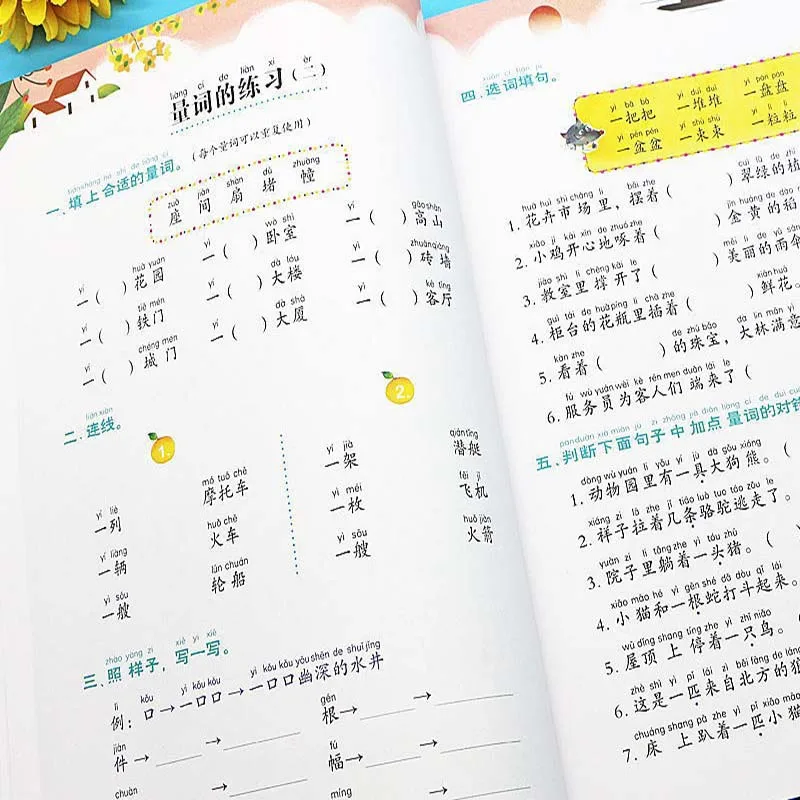 liàng cí de liàn xí èr
量词的练习(二)
tián shàng hé shì de liàng cí
一、填上合适的量词。(每个量词可以重复使用)
zuò jiān shàn dǔ zhuàng
座 间 扇 堵 幢
yì huā yuán yí wò shì yí gāo shān
一( )花园 一( )卧室 一( )高山
yí tiě mén yí dà lóu yì zhuān qiáng
一( )铁门 一( )大楼 一( )砖墙
yí chéng mén yí dà shà yì kè tīng
一( )城门 一( )大厦 一( )客厅
lián xiàn
二、连线。
1.
mó tuō chē
摩托车
yí liè
一列
huǒ chē
火车
yí liàng
一辆
lún chuán
轮船
yì sōu
一艘
2.
yí jià qián tǐng
一架 潜艇
yì méi fēi jī
一枚 飞机
yì sōu huǒ jiàn
一艘 火箭
zhào yàng zi xiě yì xiě
三、照样子,写一写。
lì kǒu yì kǒu kǒu yì kǒu kǒu yōu shēn de shuǐ jǐng
例:口→一口口→一口口幽深的水井
jiàn gēn
件→ → 根→ →
fú
幅→ →
chuàn míng
xuǎn cí tián jù
四、选词填句。
yì bǎ bǎ yì duī duī yì pán pán
一把把 一堆堆 一盘盘
yì pén pén yí shù shù yí lì lì
一盆盆 一束束 一粒粒
huā huì shì chǎng li bǎi zhe cuì lǜ de
1. 花卉市场里,摆着( )翠绿的植
xiǎo jī kāi xīn de zhuó zhe jīn huáng de
2. 小鸡开心地啄着( )金黄的稻
jiào shì li chēng kāi le měi lì de yǔ
3. 教室里撑开了( )美丽的雨伞
guì tái de huā píng li chā zhe xiān huā
4. 柜台的花瓶里插着( )鲜花。
kàn zhe de zhū bǎo dà lín mǎn yì
5. 看着( )的珠宝,大林满意
fú wù yuán wèi kè rén men duān lái le
6. 服务员为客人们端来了(
pàn duàn xià miàn jù zi zhōng jiā diǎn liàng cí de duì cuò
五、判断下面句子中加点量词的对错
dòng wù yuán li yǒu yí jù dà gǒu xióng
1. 动物园里有一具大狗熊。(
xiáng zi lā zhe jǐ tiáo luò tuo táo zǒu le
2. 祥子拉着几条骆驼逃走了。(
yuàn zi li tǎng zhe yì tóu zhū
3. 院子里躺着一头猪。(
xiǎo māo hé yì gēn shé dǎ dòu qǐ lái
4. 小猫和一根蛇打斗起来。
wū dǐng shang tíng zhe yì zhī niǎo
5. 屋顶上停着一只鸟。(
zhè shì yì pǐ lái zì běi fāng de láng
6. 这是一匹来自北方的狼
chuáng shang pā zhe yì pǐ xiǎo māo
7. 床上趴着一匹小猫